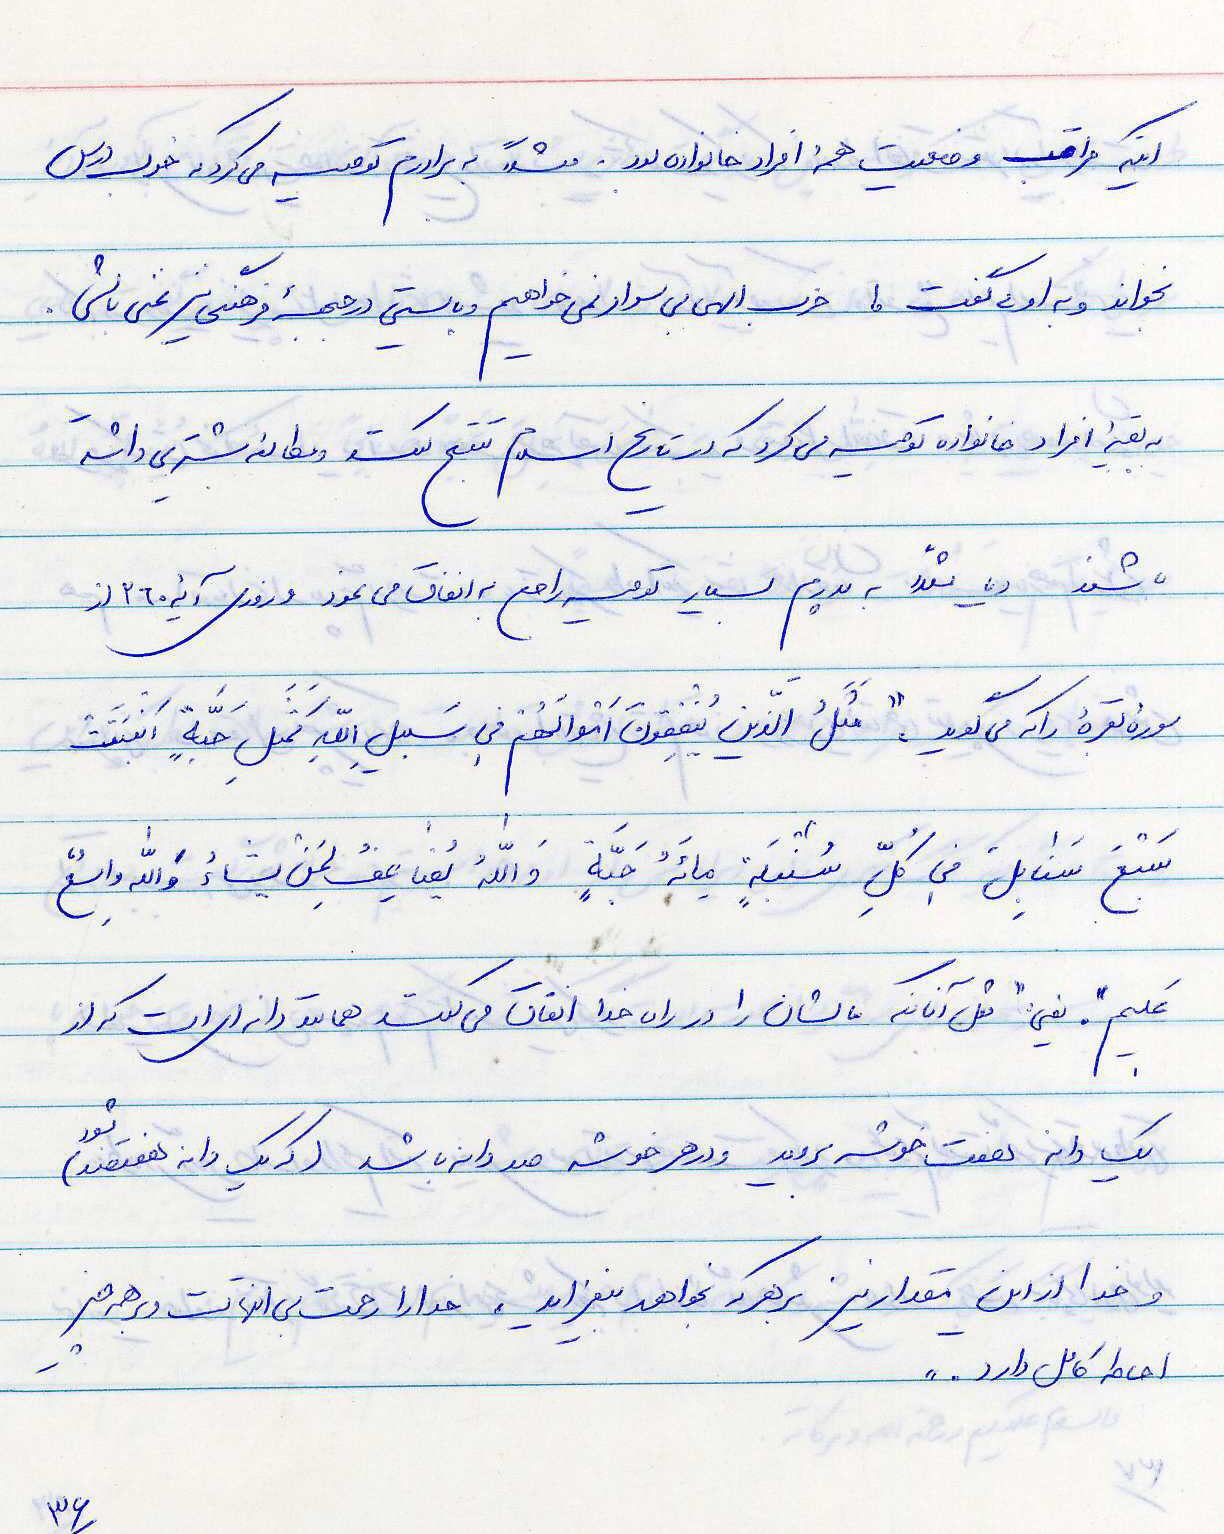 اینکه مراقب وضعیت همهٔ افراد خانواده بود. مثلاً به برادرم توصیه می‌کرد که خوب درس
بخواند و به او گفت ما حزب الهی بی سواد نمی‌خواهیم و بایستی در جبههٔ فرهنگی نیز غنی باشی.
به بقیهٔ افراد خانواده توصیه می‌کرد که در تاریخ اسلام تتبع کنند و مطالعه بیشتری داشته
باشند و یا مثلاً به پدرم بسیار توصیه راجع به انفاق می‌نمود و روزی آیهٔ ۲۶۰ از
سورهٔ بقره را که می‌گوید: "مَثَلُ الَّذینَ یُنْفِقُونَ اَمْوالَهُمْ فی سَبیلِ اللّهِ کَمَثَلِ حَبَّةٍ اَنْبَتَتْ
سَبْعَ سَنابِلَ فی کُلِّ سُنْبُلَةٍ مِائَةُ حَبَّةٍ وَ اللّهُ یُضاعِفُ لِمَنْ یَشاءُ وَ اللّه واسِعٌ
عَلیم". یعنی: "مثل آنانکه مالشان را در راه خدا انفاق می‌کنند همانند دانه‌ای است که از
یک دانه هفت خوشه بروید و در هر خوشه صد دانه باشد (که یک دانه هفتصد شود)
و خدا از این مقدار نیز بر هر که بخواهد بیفزاید، خدا را رحمت بی انتهاست و بر همه چیز
احاطه کامل دارد."
۳۶